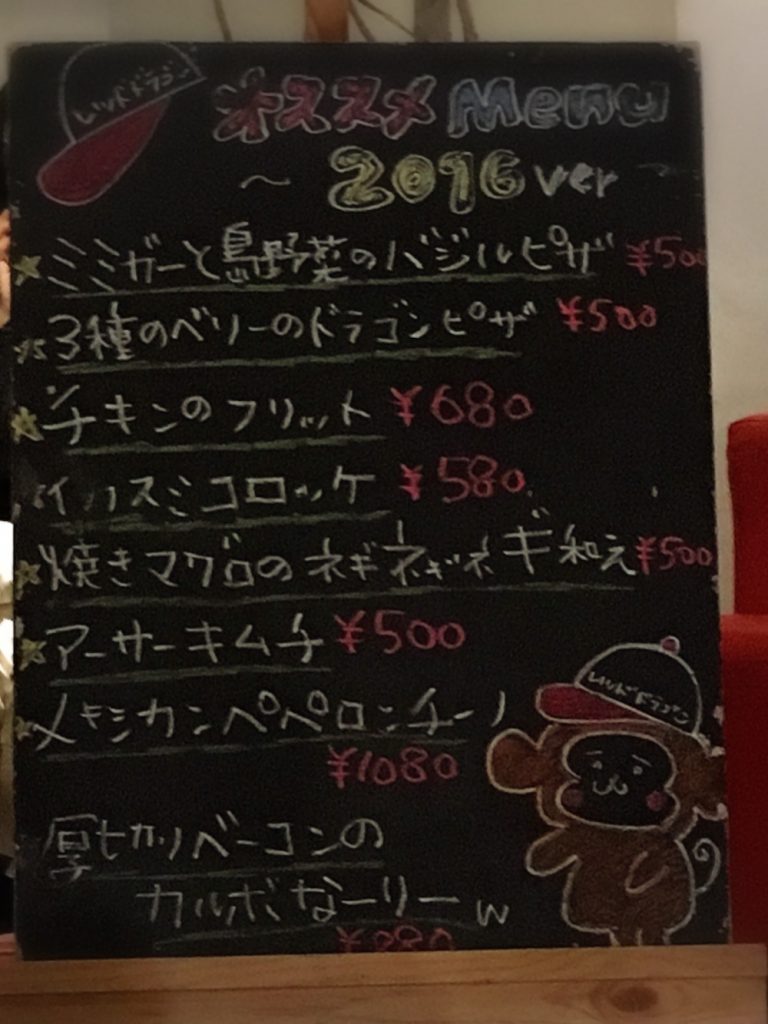 レッドドラゴン
オススメ Menu
～ 2016 ver
ミミガーと島野菜のバジルピザ ¥500
3種のベリーのドラゴンピザ ¥500
チキンのフリット ¥680
イカスミコロッケ ¥580
焼きマグロのネギネギネギ和え ¥500
アーサーキムチ ¥500
メキシカンペペロンチーノ
¥1080
レッドドラゴン
厚切りベーコンの
カルボなーりーw